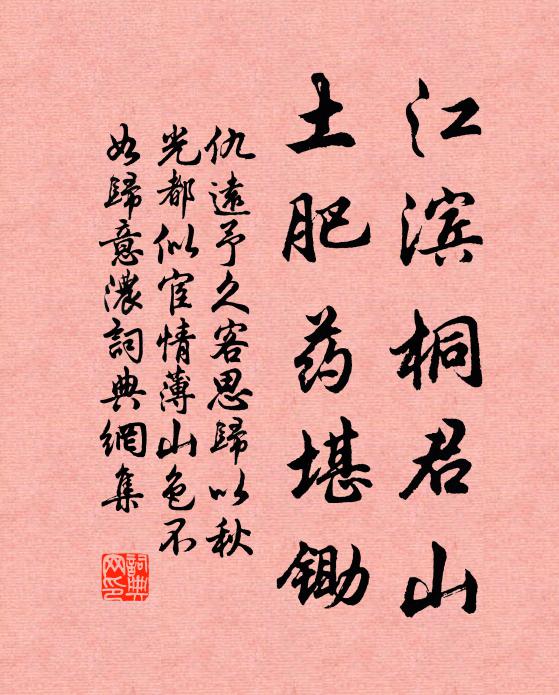 江滨桐君山
土肥药堪锄
仇遠予久客思歸以秋
光都似宦情薄山色不
如歸意濃詞典網集
詞典
网印